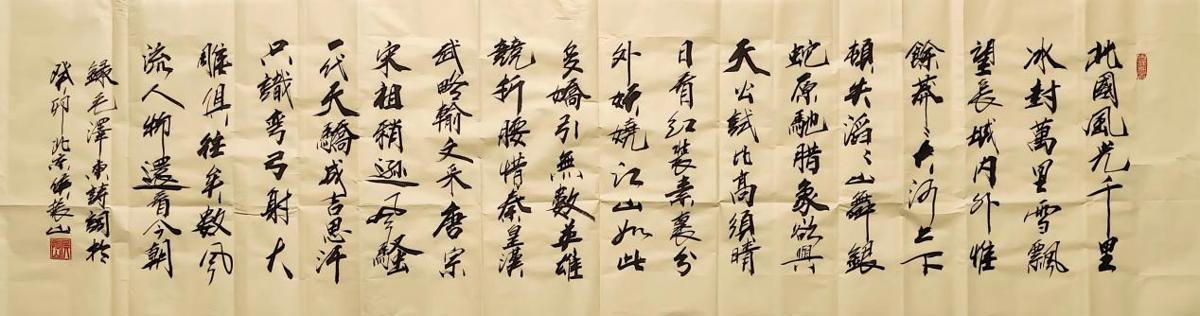 北國風光千里
冰封萬里雪飄
望長城內外惟
餘莽〻大河上下
頓失滔〻山舞銀
蛇原馳腊象欲與
天公試比高須晴
日看紅裝素裹分
外妖嬈江山如此
多嬌引無數英雄
競折腰惜秦皇漢
武略輸文采唐宗
宋祖稍遜風騷
一代天驕成吉思汗
只識彎弓射大
雕俱往矣數風
流人物還看今朝
錄毛澤東詩詞於
癸卯北京山